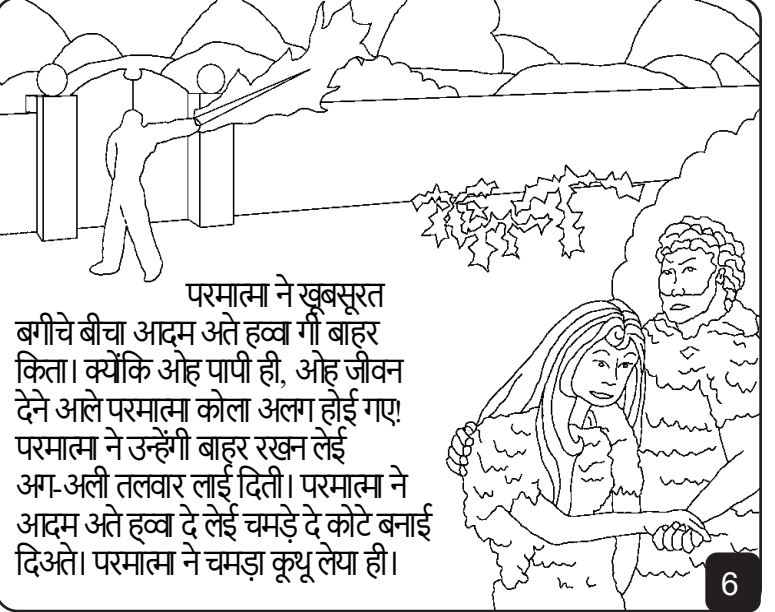 परमात्मा ने खूबसूरत
बगीचे बीचा आदम अते हव्वा गी बाहर
किता। क्योंकि ओह पापी ही, ओह जीवन
देने आले परमात्मा कोला अलग होई गए!
परमात्मा ने उन्हेंगी बाहर रखन लेई
अग-अली तलवार लाई दिती। परमात्मा ने
आदम अते हव्वा दे लेई चमड़े दे कोटे बनाई
दिअते। परमात्मा ने चमड़ा कूथू लेया ही।
6